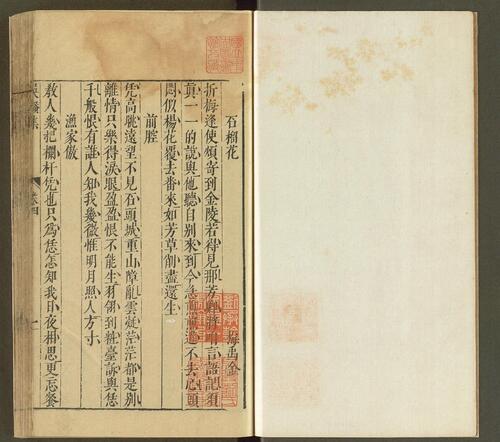 石榴花　梅禹金
折梅逢使煩寄到金陵若得見那芳卿將咱言語記須
真一一的說與他聽自别來到今急煎煎過不去心頭
悶似楊花覆去番來如芳草剷盡還生
前腔
凭高眺遠望不見石頭城重山障亂雲凝茫茫都是别
離情只樂得淚眼盈盈恨不能生羽翎到粧臺訴與恁
千般恨有誰人知我幾微惟明月照人方寸
漁家傲
教人幾把欄杆凭也只為恁怎知我日夜相思更忘餐
集
卷四
一